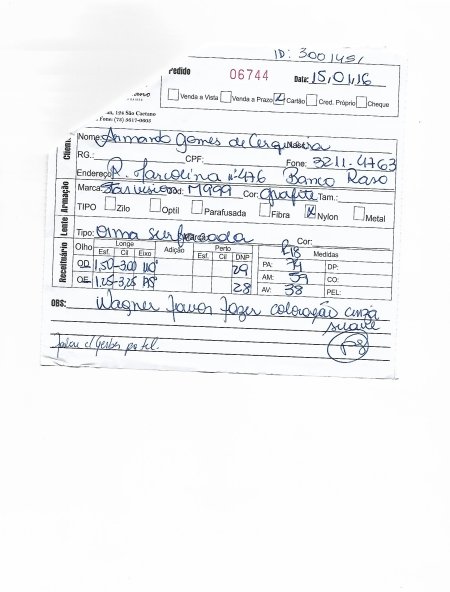 ID: 3001451
Pedido 06744 Data: 15,01,16
Venda a Vista Venda a Prazo Cartão Cred. Próprio Cheque
, 124 São Caetano
Fone: (75) 3617-0603
Cliente Nome: Armando Gomes de Cerqueira
RG.: CPF: Fone: 3211-4763
Endereço R. Marcolina nº 476 Banco Raso
Armação Marca: Mod: M999 Cor: grafite Tam.:
TIPO Zilo Optil Parafusada Fibra Nylon Metal
Lente Tipo: orma surfaçada Cor:
Receituário Olho Longe Adição Perto Medidas
Esf. Cil Eixo Esf. Cil DNP
OD 1,50 -3,00 110° 29 PA: 71 DP:
AM: 59 CO:
OE 1,25 -3,25 28 AV: 38 PEL:
OBS: Wagner favor fazer coloração cinza
suave
Falou c/ por tel.